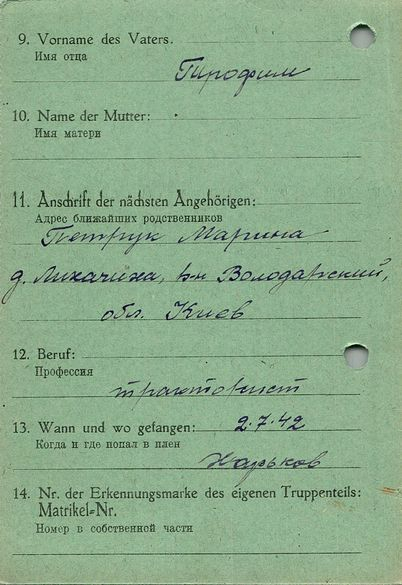 9. Vorname des Vaters.
Имя отца
Трофим
10. Name der Mutter:
Имя матери
11. Anschrift der nächsten Angehörigen:
Адрес ближайших родственников
Петрук Марина
д. Лихачиха, рн Володарский,
обл. Киев
12. Beruf:
Профессия
тракторист
13. Wann und wo gefangen: 2.7.42
Когда и где попал в плен
Харьков
14. Nr. der Erkennungsmarke des eigenen Truppenteils:
Matrikel-Nr.
Номер в собственной части